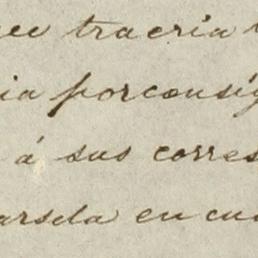 que traeria
ia porconsig
á sus corres
arsela en cu